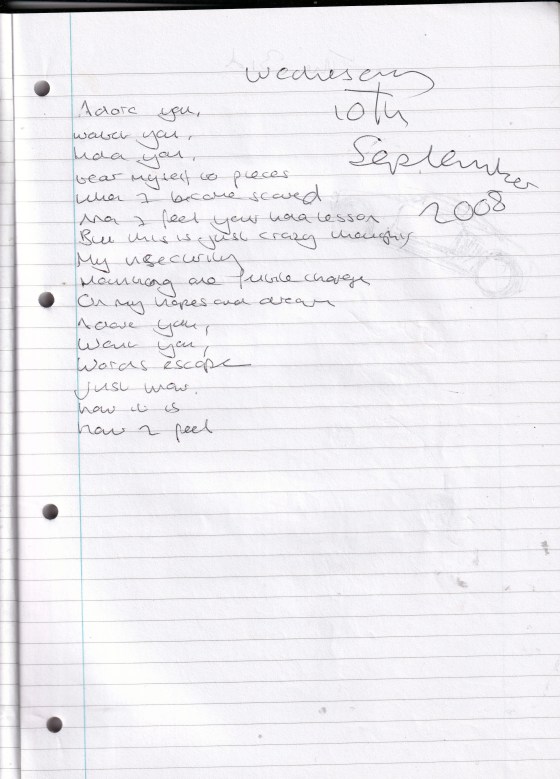 Wednesday
10th
September
2008
I adore you,
want you,
hold you,
tear myself to pieces
when I become scared
And I feel your hold lessen
But this is just crazy thoughts
My insecurity
Mounting one futile charge
On my hopes and dream
I adore you,
Want you,
Words escape
Just know
how it is
how I feel